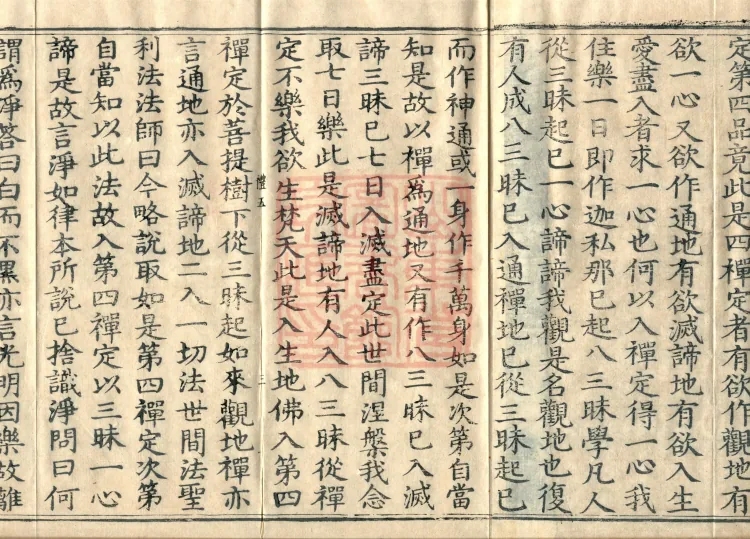 定第四品竟此是四禪定者有欲作觀地有
欲一心又欲作通地有欲滅諦地有欲入生
愛盡入者求一心也何以入禪定得一心我
住樂一日即作迦私那已起八三昧學凡人
從三昧起已一心諦諦我觀是名觀地也復
有人成八三昧已入通禪地已從三昧起已
而作神通或一身作千萬身如是次第自當
知是故以禪為通地又有作八三昧已入滅
諦三昧已七日入滅盡定此世間涅槃我念
取七日樂此是滅諦地有人入八三昧從禪
定不樂我欲生梵天此是入生地佛入第四
禮五
三
禪定於菩提樹下從三昧起如來觀地禪亦
言通地亦入滅諦地二入一切法世間法聖
利法法師曰今略說取如是第四禪定次第
自當知以此法故入第四禪定以三昧一心
諦是故言淨如律本所說已捨識淨問曰何
謂為淨答曰白而不黑亦言光明因樂故離